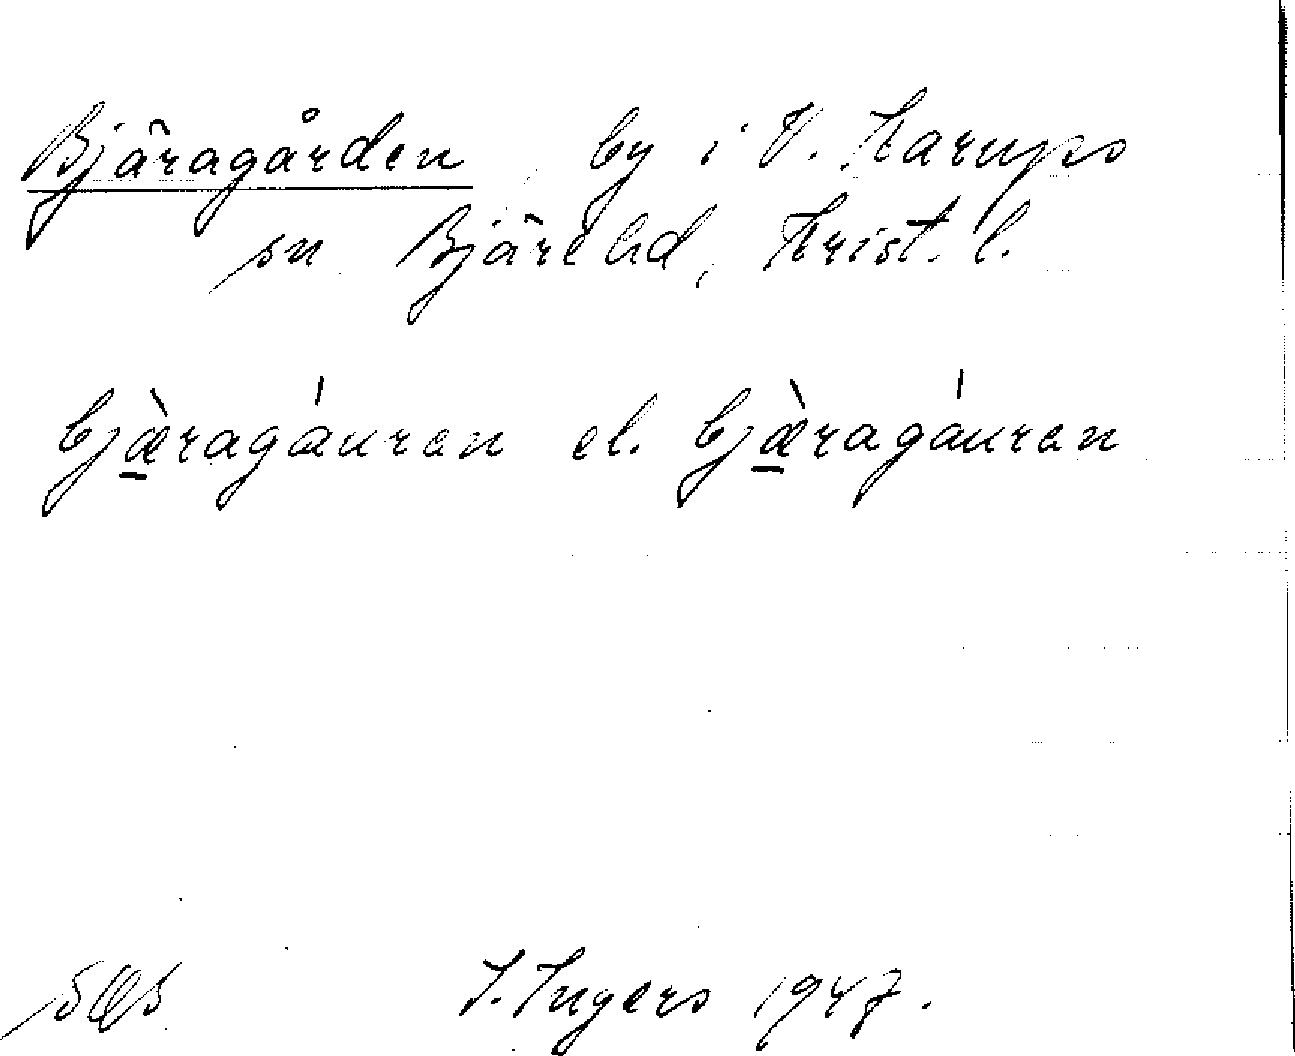 Bjäragården, by i V. Karups
sn Bjäre hd, Krist. l.
bjæ̀ragáuren el. bjæ̀ragáuren
I. Ingers 1947.